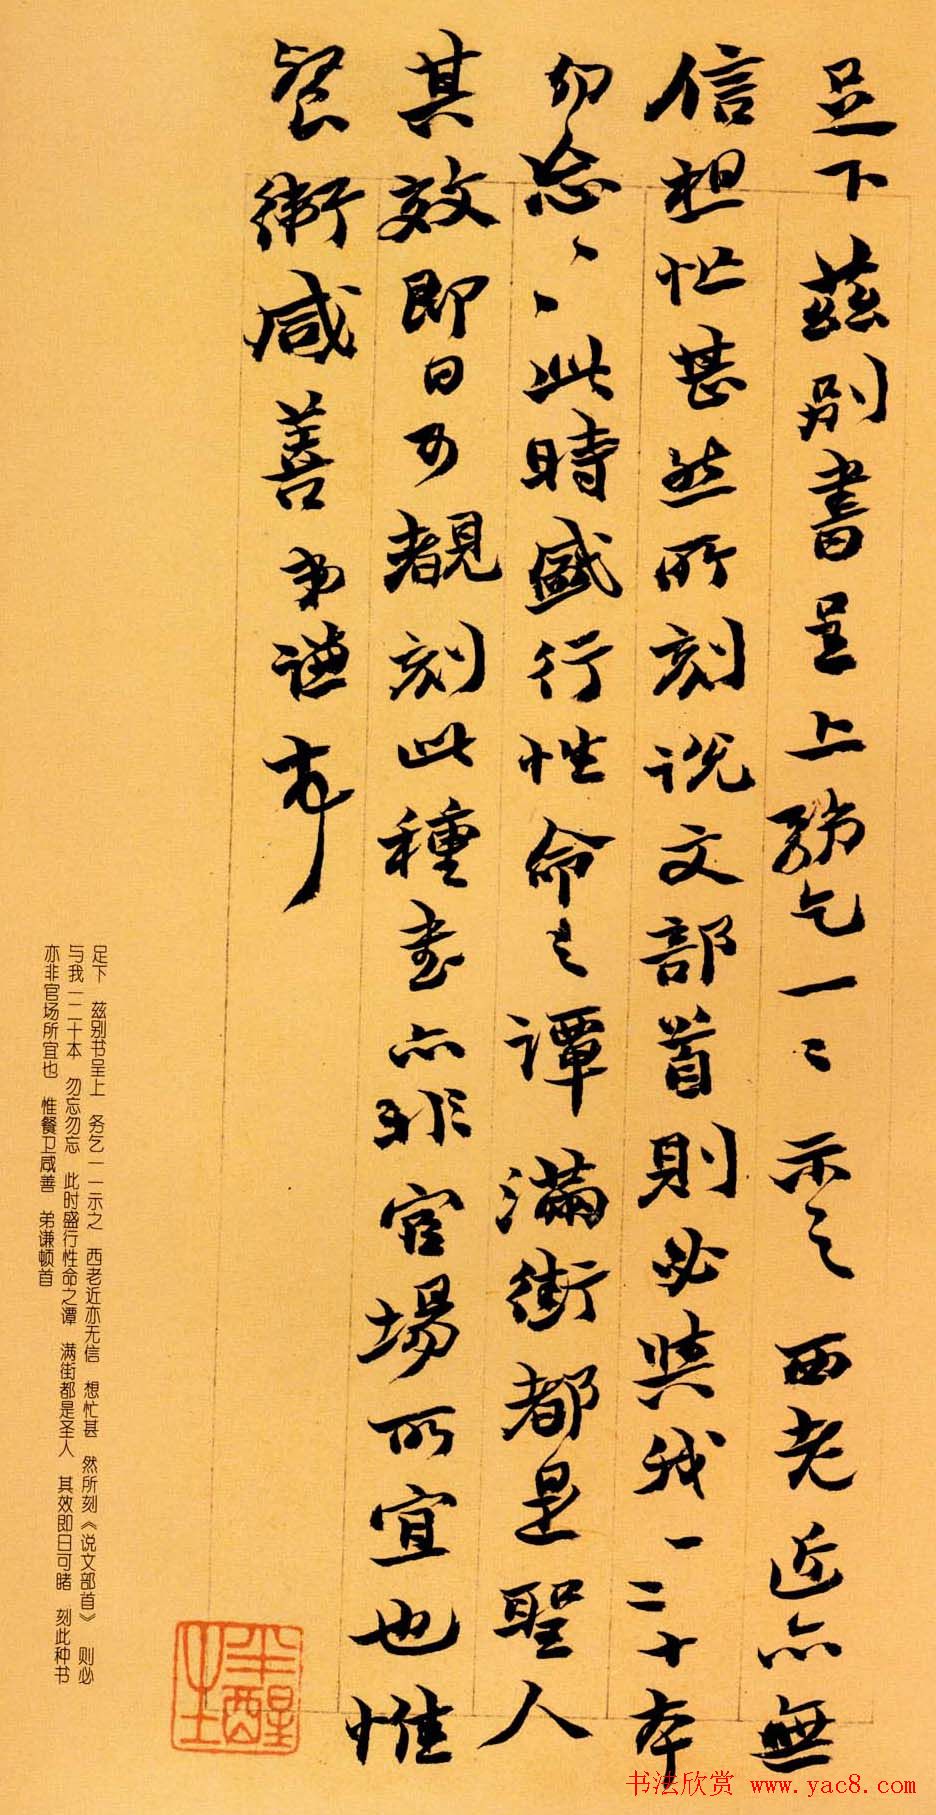 足下 茲別書呈上務乞一〻示之 西老近亦無
信想忙甚然所刻说文部首則必與我一二十本
勿忘〻〻此時盛行性命之譚滿街都是聖人
其效即日可覩刻此種書亦非官場所宜也惟
餐衛咸善弟謙頓首
足下 兹别书呈上 务乞一一示之 西老近亦无信 想忙甚 然所刻《说文部首》 则必
与我一二十本 勿忘勿忘 此时盛行性命之谭 满街都是圣人 其效即日可睹 刻此种书
亦非官场所宜也 惟餐卫咸善 弟谦顿首
书法欣赏 www.yac8.com